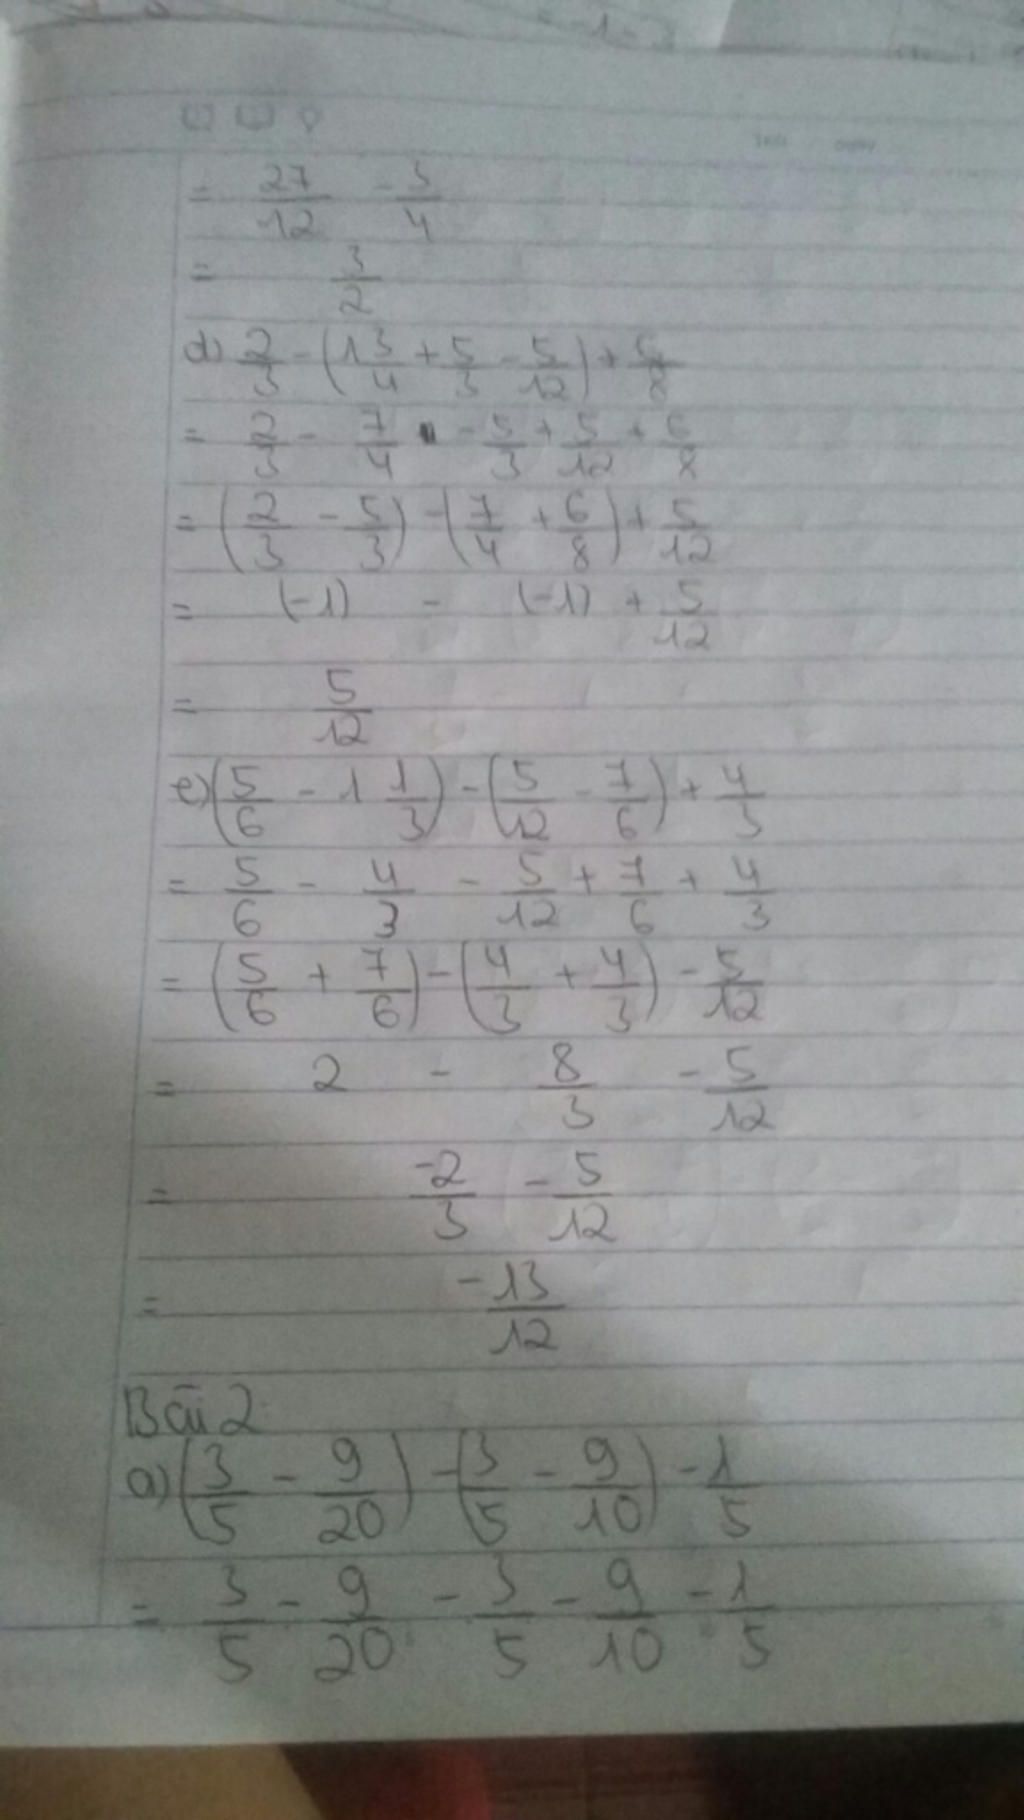 = 27/12 - 3/4
= 3/2
d) 2/3 - (1 3/4 + 5/3 - 5/12) + 6/8
= 2/3 - 7/4 - 5/3 + 5/12 + 6/8
= (2/3 - 5/3) - (7/4 + 6/8) + 5/12
= (-1) - (-1) + 5/12
= 5/12
e) (5/6 - 1 1/3) - (5/12 - 7/6) + 4/3
= 5/6 - 4/3 - 5/12 + 7/6 + 4/3
= (5/6 + 7/6) - (4/3 + 4/3) - 5/12
= 2 - 8/3 - 5/12
= -2/3 - 5/12
= -13/12
Bài 2
a) (3/5 - 9/20) - (3/5 - 9/10) - 1/5
= 3/5 - 9/20 - 3/5 - 9/10 - 1/5